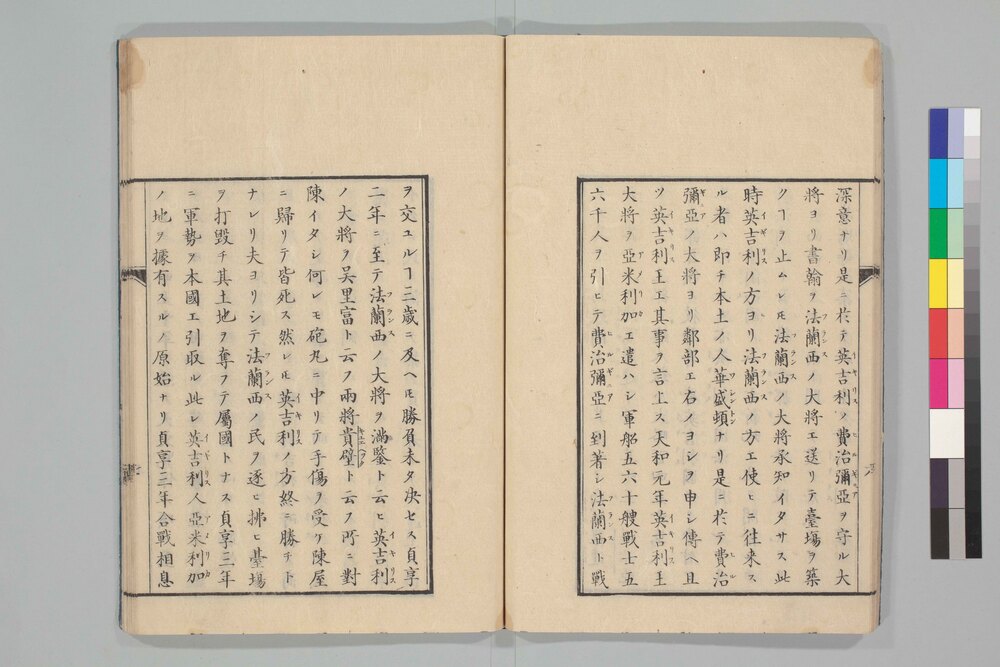 深意ナリ是ニ於テ英吉利ノ費治彌亞ヲ守ル大
将ヨリ書翰ヲ法蘭西ノ大将エ送リテ臺場ヲ築
クヿヲ止ムレ𪜈法蘭西ノ大将承知イタサス此
時英吉利ノ方ヨリ法蘭西ノ方エ使ヒニ往来ス
ル者ハ即チ本土ノ人華盛頓ナリ是ニ於テ費治
彌亞ノ大将ヨリ鄰部エ右ノヨシヲ申シ傳ヘ且
ツ英吉利王エ其事ヲ言上ス天和元年英吉利王
大将ヲ亞米利加エ遣ハシ軍船五六十艘戦士五
六千人ヲ引ヒテ費治彌亞ニ到著シ法蘭西ト戦
ヲ交ユルヿ三歳ニ及ヘ𪜈勝負未タ决セス貞享
二年ニ至テ法蘭西ノ大将ヲ滿鑒ト云ヒ英吉利
ノ大将ヲ吴里富ト云フ兩将貴壁ト云フ所ニ對
陳イタシ何レモ砲丸ニ中リテ手傷ヲ受ケ陳屋
ニ歸リテ皆死ス然レ𪜈英吉利ノ方終ニ勝チト
ナレリ夫ヨリシテ法蘭西ノ民ヲ逐ヒ拂ヒ臺場
ヲ打毀チ其土地ヲ奪フテ屬國トナス貞享三年
ニ軍勢ヲ本國エ引取ル此レ英吉利人亞米利加
ノ地ヲ據有スルノ原始ナリ貞享三年合戦相息